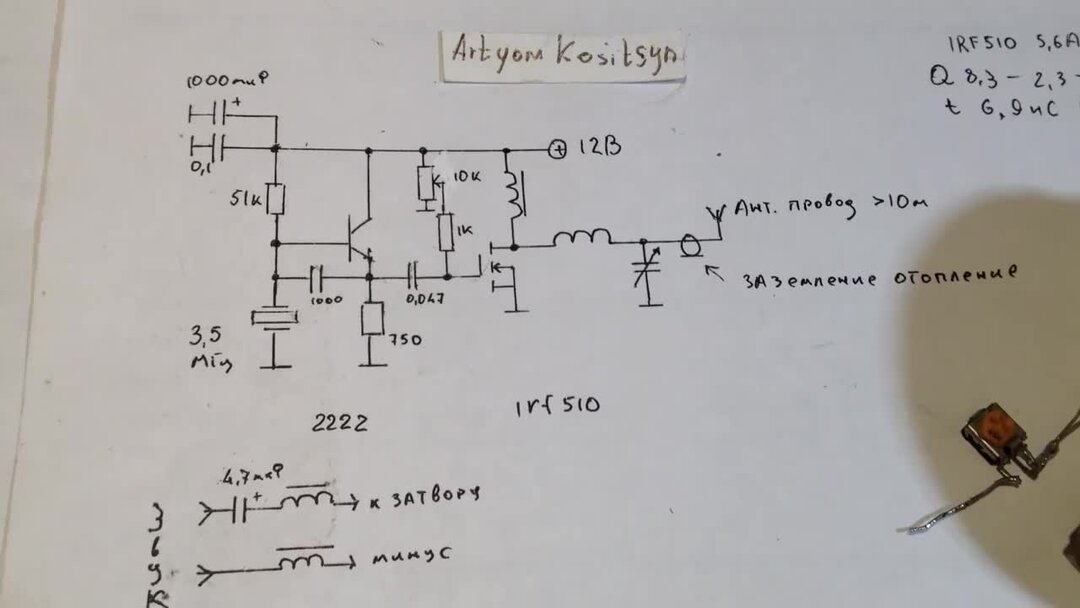 Artyom Kositsyn
IRF510 5,6A
Q 8,3 - 2,3 -
t 6,9нС
1000мкР
+
0,1
+ 12В
51к
10к
1к
Ант. провод >10м
заземление отопление
1000
0,047
3,5
МГц
750
2222
irf 510
4,7мкР
+
к затвору
минус
Звук